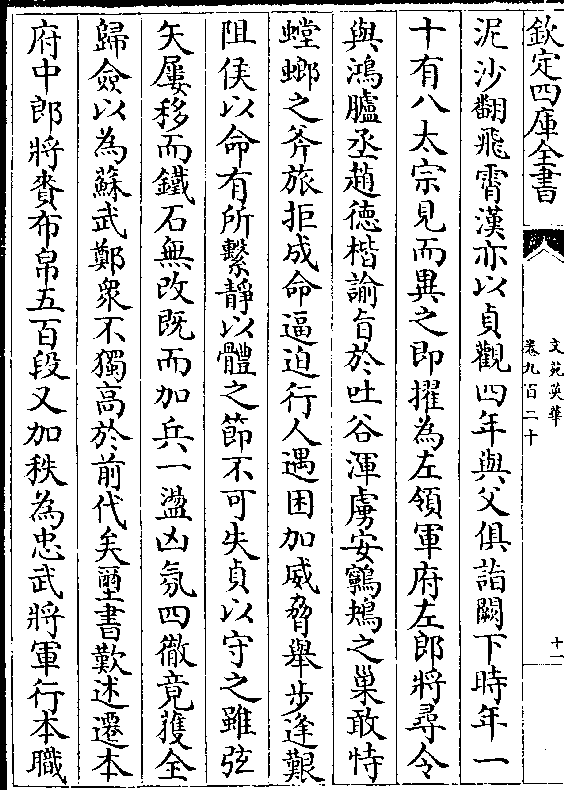 欽定四庫全書
文苑英華
卷九百二十
十一
泥沙翻飛霄漢亦以貞觀四年與父俱詣闕下時年一
十有八太宗見而異之即擢為左領軍府左郎將尋令
與鴻臚丞趙德楷諭旨於吐谷渾虜安鷦鷯之巢敢恃
螳螂之斧旅拒成命逼迫行人遇困加威脅舉步逢艱
阻侯以命有所繫靜以體之節不可失貞以守之雖弦
矢屢移而鐵石無改既而加兵一盪凶氛四徹竟獲全
歸僉以為蘇武鄭衆不獨高於前代矣璽書歎述遷本
府中郎將賚布帛五百段又加秩為忠武將軍行本職